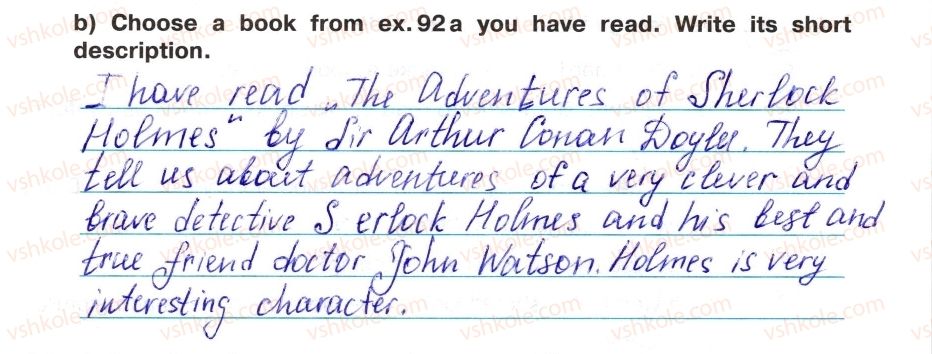 b) Choose a book from ex. 92 a you have read. Write its short
description.
I have read „The Adventures of Sherlock
Holmes" by Sir Arthur Conan Doyle. They
tell us about adventures of a very clever and
brave detective S erlock Holmes and his best and
true friend doctor John Watson. Holmes is very
interesting character.